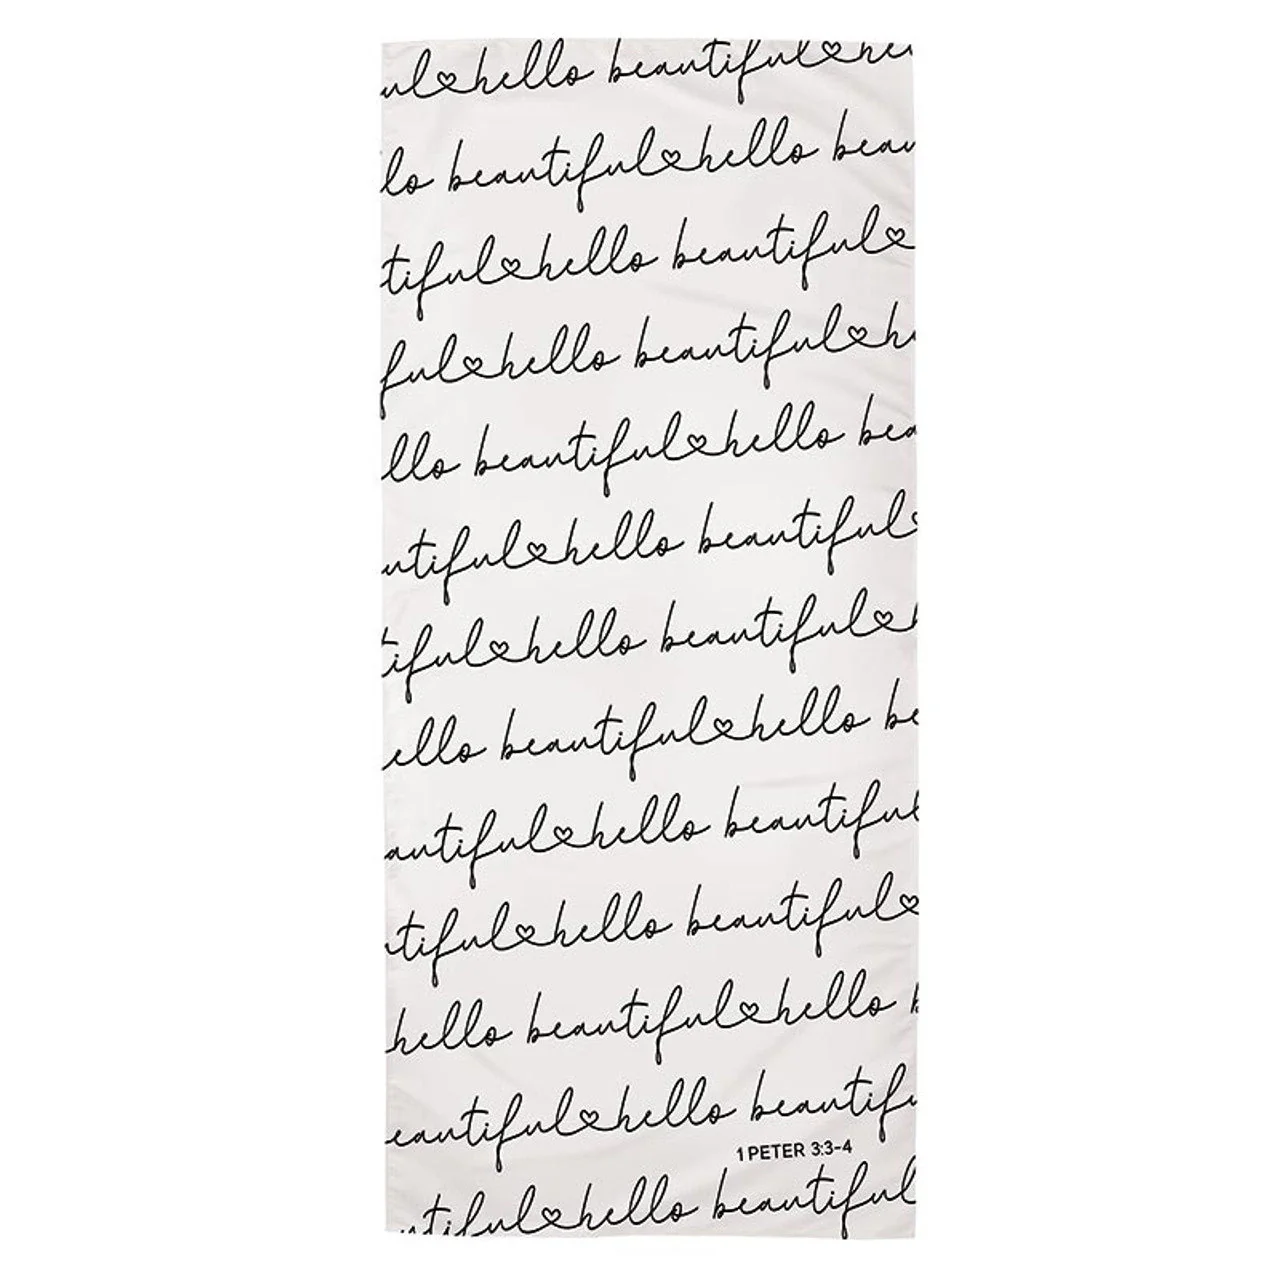 ul♡hello beautiful♡hel
lo beautiful♡hello beau
tiful♡hello beautiful♡
ful♡hello beautiful♡h
llo beautiful♡hello bea
utiful♡hello beautiful♡
tiful♡hello beautiful♡h
ello beautiful♡hello be
autiful♡hello beautiful
utiful♡hello beautiful♡
hello beautiful♡hello b
eautiful♡hello beautifu
1 PETER 3:3-4
utiful♡hello beautiful